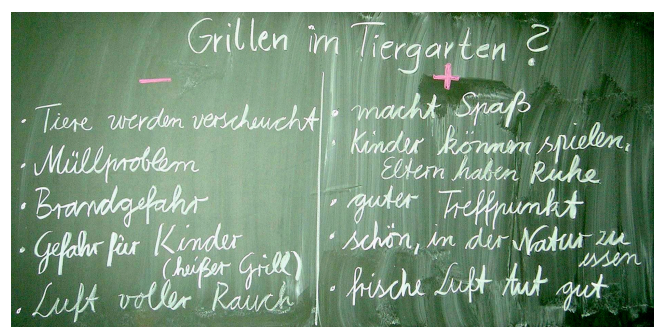 Grillen im Tiergarten?
−
· Tiere werden verscheucht
· Müllproblem
· Brandgefahr
· Gefahr für Kinder
(heißer Grill)
· Luft voller Rauch
+
· macht Spaß
· Kinder können spielen,
Eltern haben Ruhe
· guter Treffpunkt
· schön, in der Natur zu
essen
· frische Luft tut gut